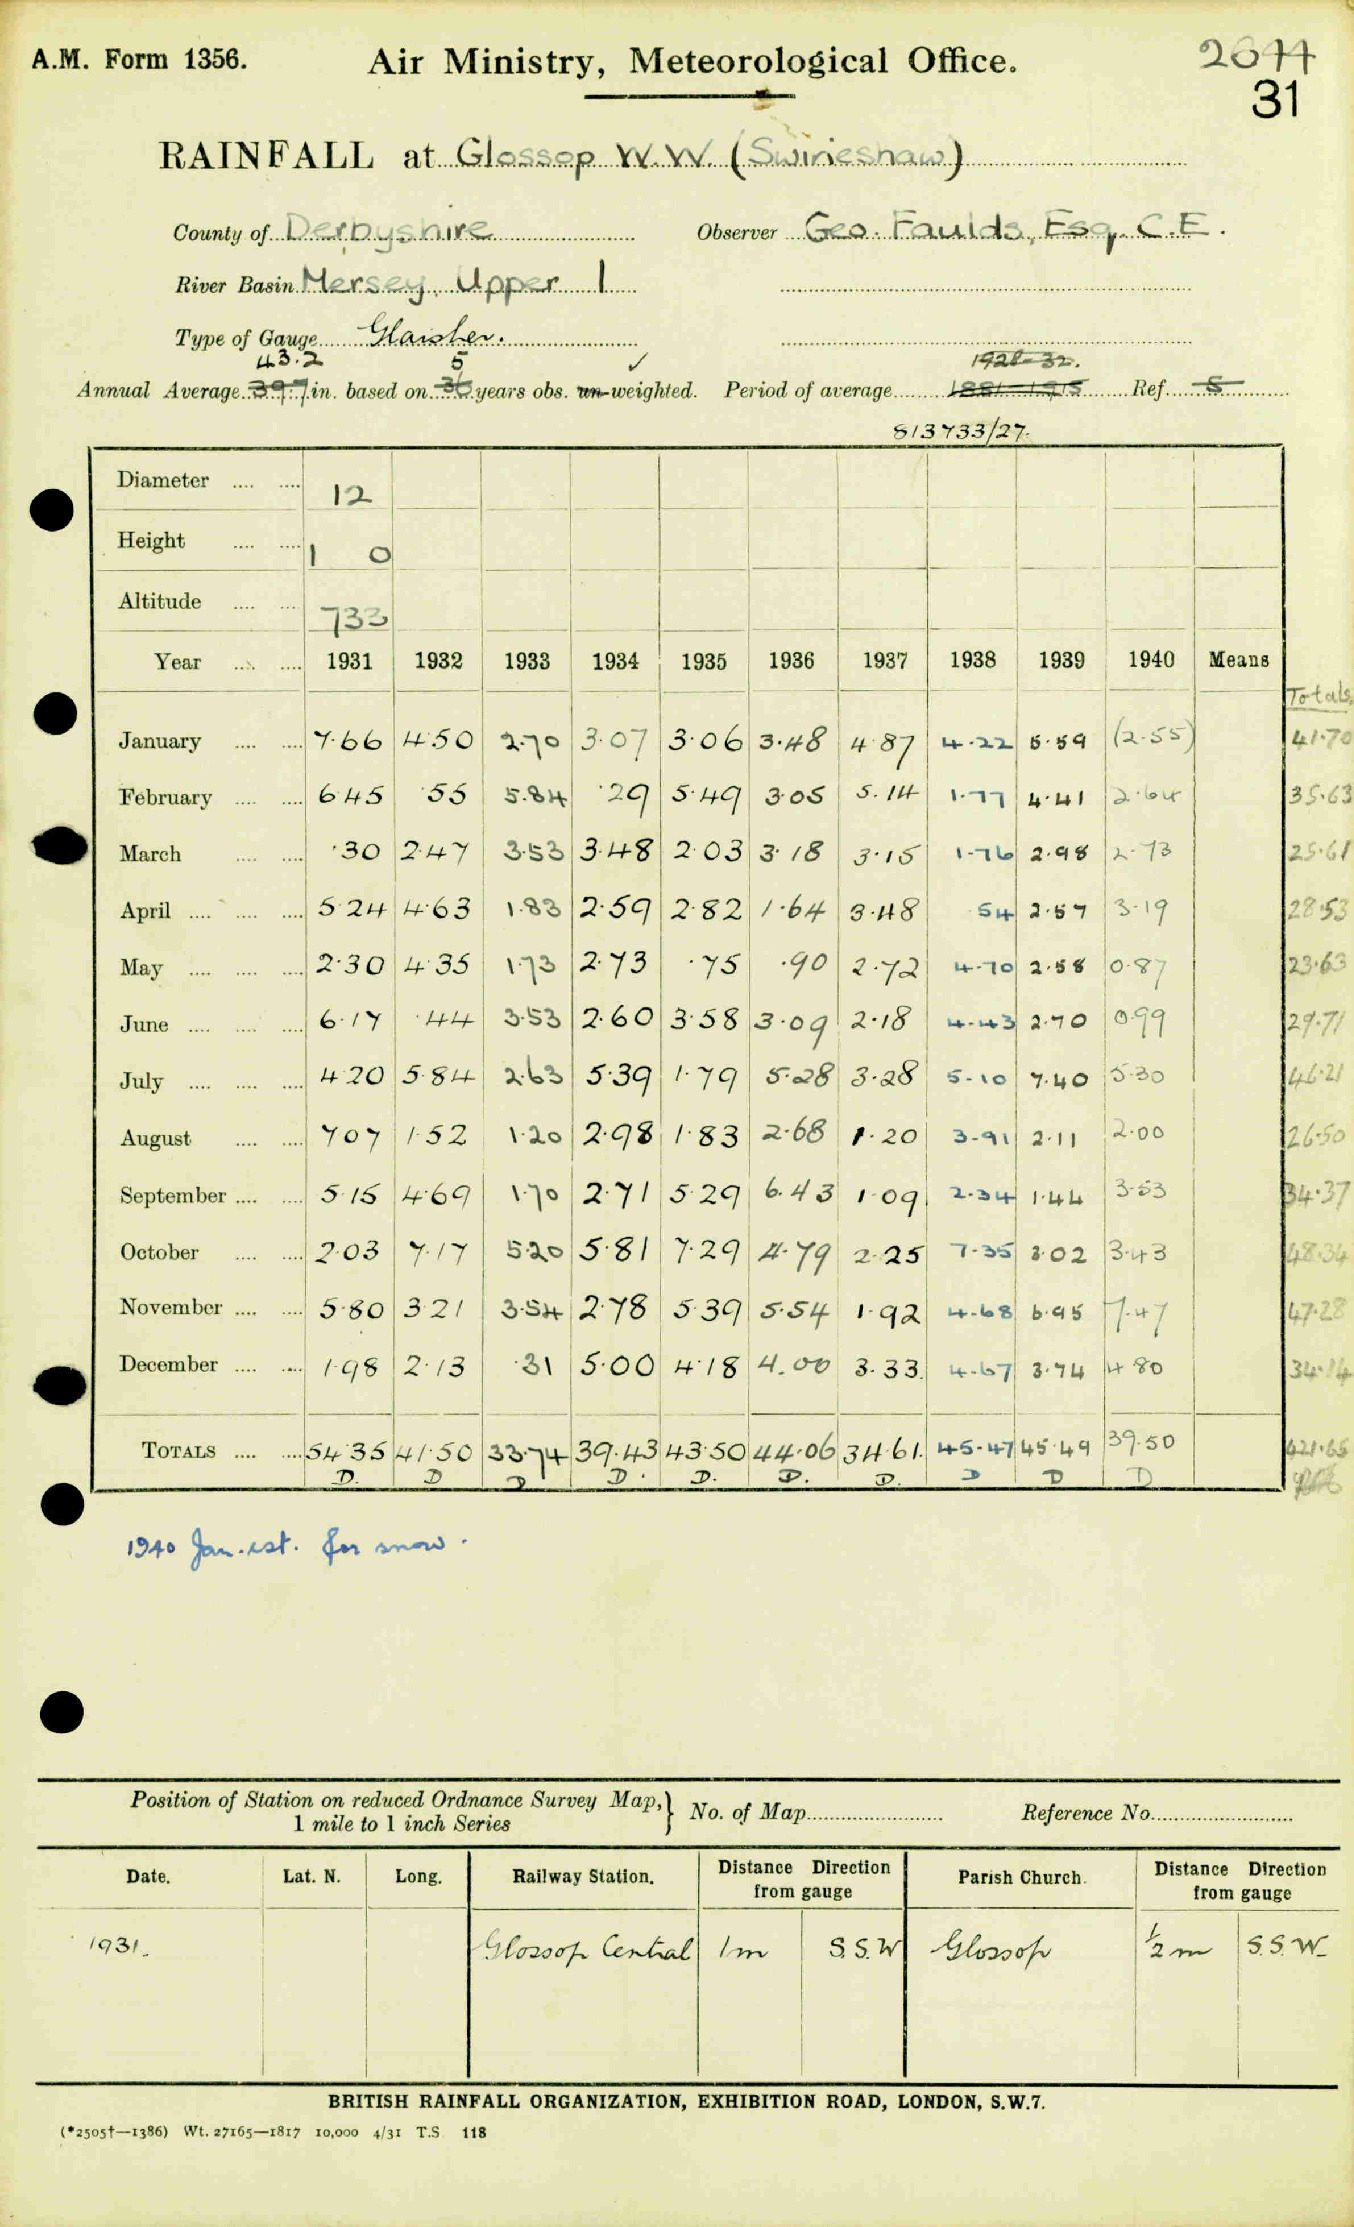 A.M. Form 1356. Air Ministry, Meteorological Office. 2644
31
RAINFALL at Glossop W.W. (Swineshaw)
County of Derbyshire Observer Geo. Faulds, Esq. C.E.
River Basin Mersey, Upper 1
Type of Gauge Glaisher.
43.2 5 ✓ 1928-32.
Annual Average 39.7 in. based on 36 years obs. un-weighted. Period of average 1881-1915 Ref. S
813733/27.
Diameter 12
Height 1 0
Altitude 733
Year 1931 1932 1933 1934 1935 1936 1937 1938 1939 1940 Means
Totals
January 7.66 4.50 2.70 3.07 3.06 3.48 4.87 4.22 5.59 (2.55) 41.70
February 6.45 .55 5.84 .29 5.49 3.05 5.14 1.77 4.41 2.64 35.63
March .30 2.47 3.53 3.48 2.03 3.18 3.15 1.76 2.98 2.73 25.61
April 5.24 4.63 1.83 2.59 2.82 1.64 3.48 54 2.57 3.19 28.53
May 2.30 4.35 1.73 2.73 .75 .90 2.72 4.70 2.58 0.87 23.63
June 6.17 .44 3.53 2.60 3.58 3.09 2.18 4.43 2.70 0.99 29.71
July 4.20 5.84 2.63 5.39 1.79 5.28 3.28 5.10 7.40 5.30 46.21
August 7.07 1.52 1.20 2.98 1.83 2.68 1.20 3.91 2.11 2.00 26.50
September 5.15 4.69 1.70 2.71 5.29 6.43 1.09 2.34 1.44 3.53 34.37
October 2.03 7.17 5.20 5.81 7.29 4.79 2.25 7.35 3.02 3.43 48.34
November 5.80 3.21 3.54 2.78 5.39 5.54 1.92 4.68 6.95 7.47 47.28
December 1.98 2.13 .31 5.00 4.18 4.00 3.33 4.67 3.74 4.80 34.14
TOTALS 54.35 41.50 33.74 39.43 43.50 44.06 34.61 45.47 45.49 39.50 421.65
D. D D D. D. D. D. D D D
1940 Jan. est. for snow.
Position of Station on reduced Ordnance Survey Map, } No. of Map Reference No.
1 mile to 1 inch Series
Date. Lat. N. Long. Railway Station. Distance Direction from gauge Parish Church. Distance Direction from gauge
1931. Glossop Central 1m S.S.W Glossop ½ m S.S.W.
BRITISH RAINFALL ORGANIZATION, EXHIBITION ROAD, LONDON, S.W.7.
(*2505†—1386) Wt. 27165—1817 10,000 4/31 T.S. 118